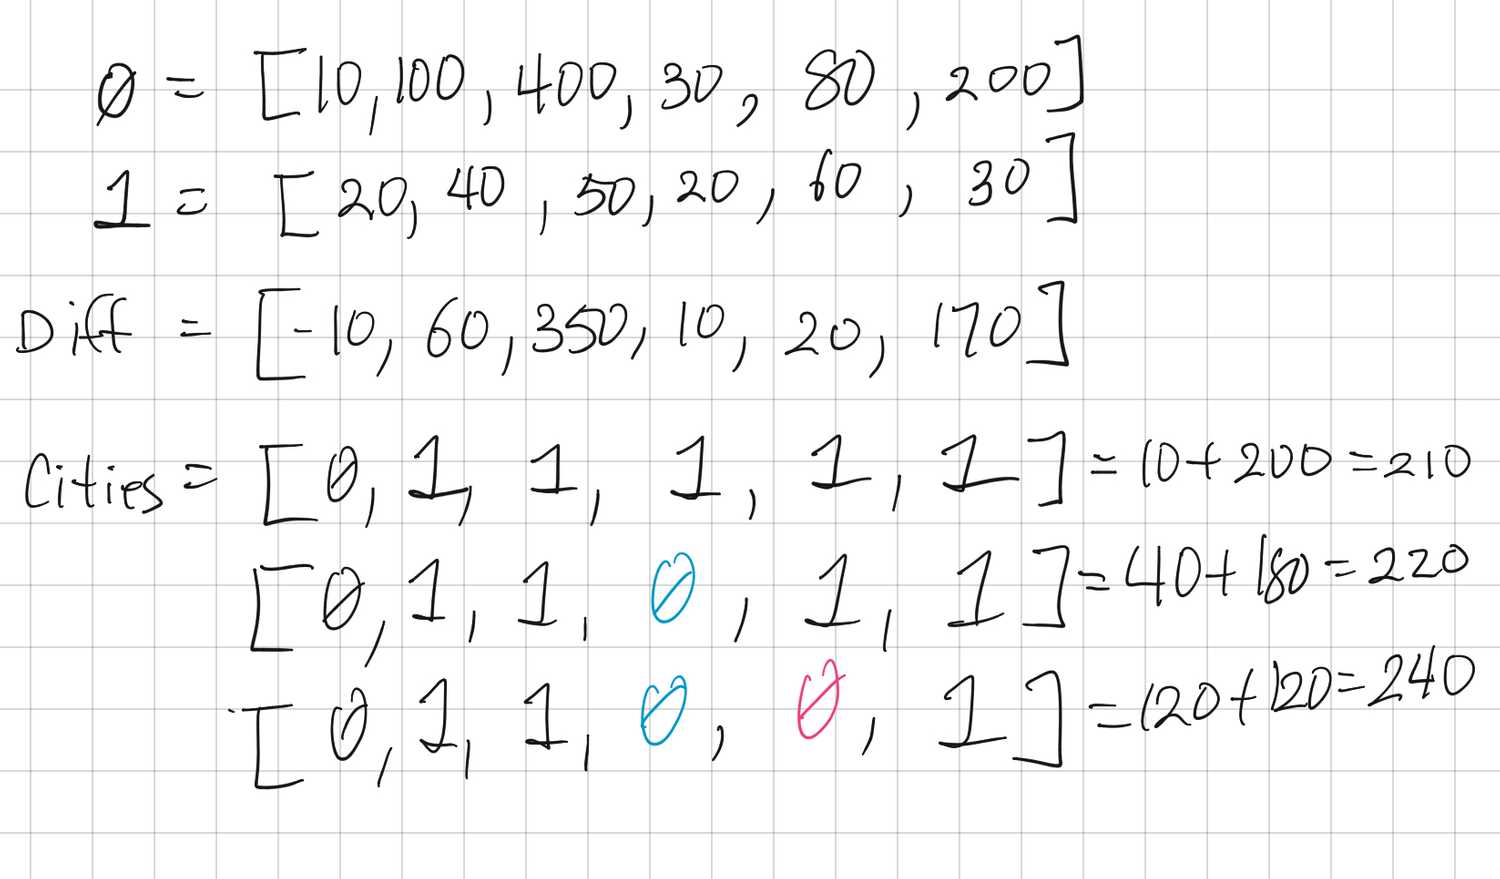 0 = [10, 100, 400, 30, 80, 200]
1 = [20, 40, 50, 20, 60, 30]
Diff = [-10, 60, 350, 10, 20, 170]
Cities = [0, 1, 1, 1, 1, 1] = 10+200=210
[0, 1, 1, 0, 1, 1] = 40+180=220
[0, 1, 1, 0, 0, 1] = 120+120=240